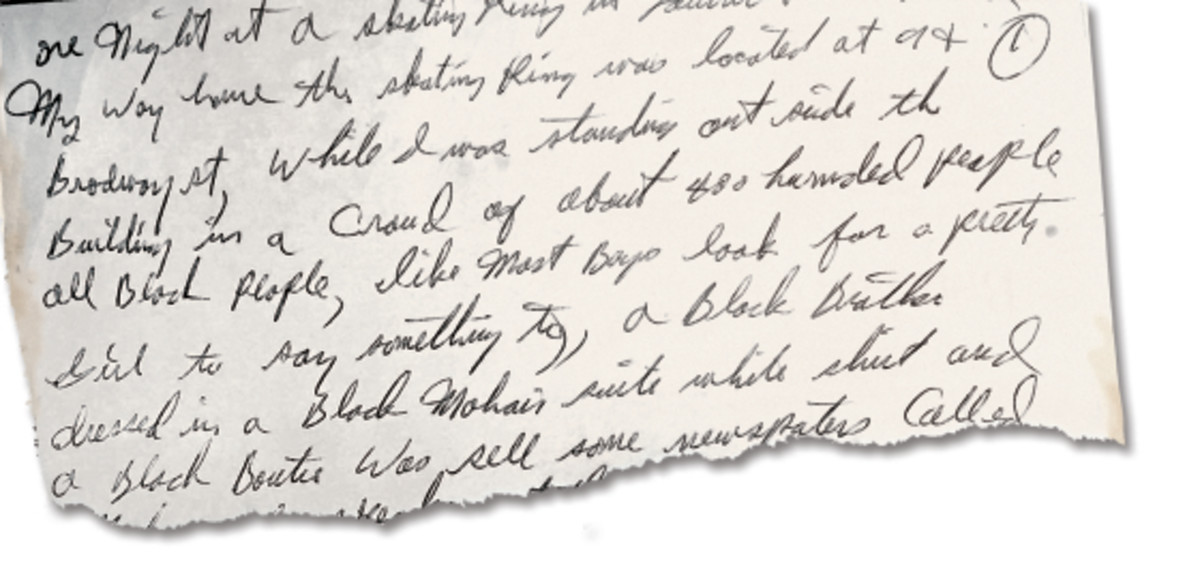 one Night at a skating Ring in
My way home the skating Ring was located at 9th ①
Brodway st, while I was standing out side th
Building in a Croud of about 400 hurnded people
all Black people, like Most Boys look for a pretty
Girl to say something to, a Black Brother
dressed in a Black Mohair suite white shirt and
a Black Boutie Was sell some newspaters Called